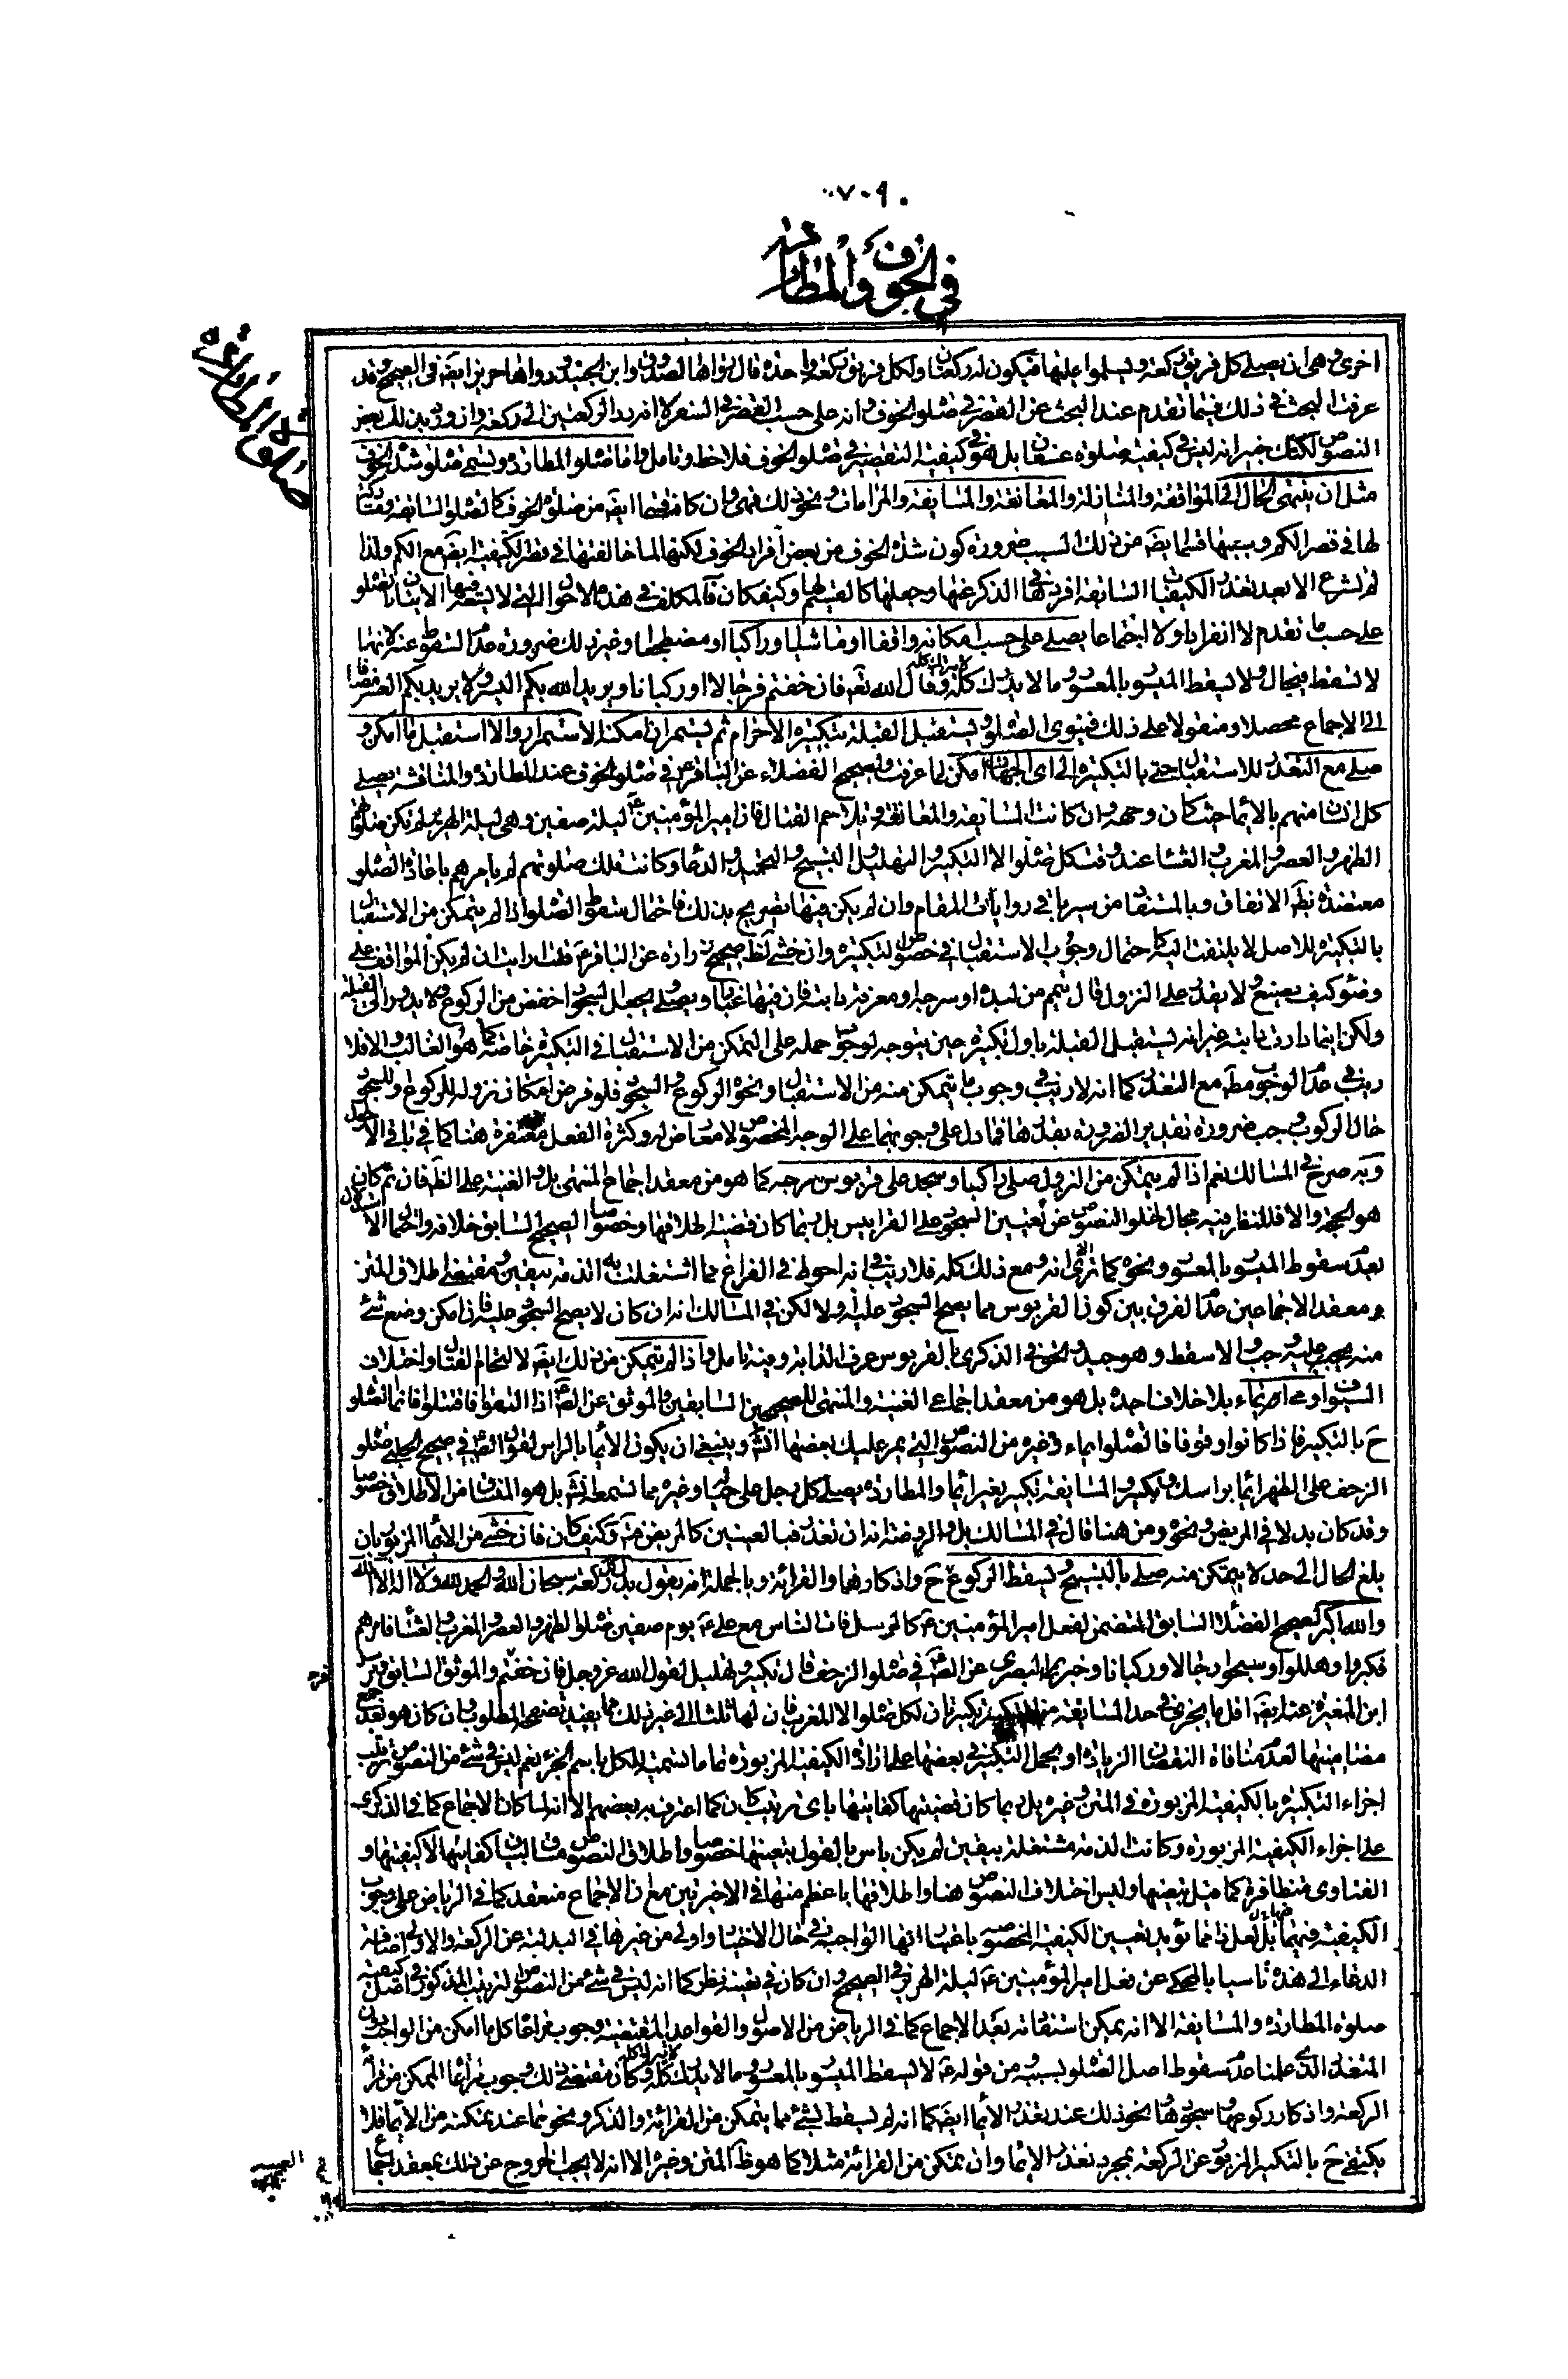 ٧٠٩
في الخوف والمطاردة
صلوة المطاردة
اخرى وهى ان يصلى كل فريق ركعة ويسلموا عليها فيكون له ركعتان ولكل فريق ركعة واحدة قال رواها الصدوق وابن الجنيد ورواها حريز ايضا في الصحيح وقد
عرفت البحث في ذلك فيما تقدم عند البحث عن القصر في صلوة الخوف وانه على حسب القصر في السفر لا انه يرد الركعتين الى ركعة وان ورد بذلك بعض
النصوص لكنك خبير انه ليس في كيفية صلوة عسفان بل هو في كيفية التقصير في صلوة الخوف فلاحظ وتامل واما صلوة المطاردة وتسمى صلوة شدة الخوف
مثل ان ينتهى الحال الى المواقفة والمنازلة والمعانقة والمسايفة والمرامات ونحو ذلك فهى وان كانت قسما ايضا من صلوة الخوف كالصلوة السابقة
لها في قصر الكم وسببها قسما ايضا من ذلك السبب ضرورة كون شدة الخوف من بعض أفراد الخوف لكنها لما خالفتها في قصر الكيفية ايضا مع الكم ولذا
لم تشرع الا بعد تعذر الكيفيات السابقة افردها في الذكر عنها وجعلها كالقسيم لها وكيف كان فالمكلف في هذه الاحوال التى لا يسعه فيها الاتيان بالصلوة
على حسب ما تقدم لا انفرادا ولا اجتماعا يصلى على حسب امكانه واقفا او ماشيا او راكبا او مضطجعا وغير ذلك ضرورة عدم السقوط عنه لانها
لا تسقط بحال ولا يسقط الميسور بالمعسور وما لا يدرك كله لا يترك كله وقال الله تعالى فان خفتم فرجالا او ركبانا ويريد الله بكم اليسر ولا يريد بكم العسر مضافا
الى الاجماع محصلا ومنقولا على ذلك فينوى الصلوة ويستقبل القبلة بتكبيرة الاحرام ثم يستمر ان امكنه الاستمرار والا استقبل ما امكن و
صلى مع التعذر للاستقبال حتى بالتكبيرة الى اى الجهات امكن لما عرفت ولصحيح الفضلاء عن الباقر ع في صلوة الخوف عند المطاردة والمناوشة يصلى
كل انسان منهم بالايماء حيث كان وجهه وان كانت المسايفة والمعانقة وتلاحم القتال فان امير المؤمنين ع ليلة صفين وهى ليلة الهرير لم تكن صلوتهم
الظهر والعصر والمغرب والعشاء عند وقت كل صلوة الا التكبير والتهليل والتسبيح والتحميد والدعاء وكانت تلك صلوتهم لم يامرهم باعادة الصلوة
معتضدة بظاهر الاتفاق وبالمستفاد من سبرنا في روايات المقام وان لم يكن فيها تصريح بذلك فاحتمال سقوط الصلوة اذا لم يتمكن من الاستقبال
بالتكبيرة للاصل لا يلتفت اليه كاحتمال وجوب الاستقبال في خصوص التكبيرة وان خشى لظاهر صحيح زرارة عن الباقر ع قلت ارايت ان لم يكن المواقف على
وضوء كيف يصنع ولا يقدر على النزول قال يتيمم من لبده او سرجه او معرفة دابته فان فيها غبارا ويصلى ويجعل السجود اخفض من الركوع ولا يدور الى القبلة
ولكن اينما دارت دابته غير انه يستقبل القبلة باول تكبيرة حين يتوجه لوجوب حمله على التمكن من الاستقبال في التكبيرة خاصة كما هو الغالب والا فلا
ريب في عدم الوجوب مطلقا مع التعذر كما انه لا ريب في وجوب ما يتمكن منه من الاستقبال ونحو الركوع والسجود فلو فرض امكان نزوله للركوع وللسجود
حال الركوب وجب ضرورة تقدير الضرورة بقدرها فما دل على وجوبهما على الوجه المخصوص لا معارض له وكثرة الفعل مغتفرة هنا كما في باقي الاحوال
وبه صرح في المسالك نعم اذا لم يتمكن من النزول صلى راكبا وسجد على قربوس سرجه كما هو من معقد اجماع المنتهى بل والغنية على الظاهر فان تم كان
هو الحجة والا فللنظر فيه مجال لخلو النصوص عن تعيين السجود على القرابيس بل ربما كان قضية اطلاقها وخصوصا الصحيح السابق خلافه واحتمال الاستدلال
بعدم سقوط الميسور بالمعسور ونحوه كما ترى الا انه ومع ذلك كله فلا ريب في انه احوط في الفراغ عما اشتغلت به الذمة بيقين ومقتضى اطلاق المتن
ومعقد الاجماعين عدم الفرق بين كون القربوس مما يصح السجود عليه ولا لكن في المسالك انه ان كان لا يصح السجود عليه فان امكن وضع شئ
منه يصح عليه وجب والا سقط وهو جيد ونحوه في الذكرى بالقربوس عرف الدابة وفيه تامل واذا لم يتمكن من ذلك ايضا لالتحام القتال واختلاف
السيوف اومى ايماء بلا خلاف اجده بل هو من معقد اجماعى الغنية والمنتهى للصحيحين السابقين والموثق عن الصادق ع اذا التقوا فاقتتلوا فانما الصلوة
ح بالتكبير فاذا كانوا وقوفا فالصلوة ايماء وغيره من النصوص التى يمر عليك بعضها انش وينبغى ان يكون الايماء بالراس لقول الصادق ع في صحيح الحلبى صلوة
الزحف على الظهر ايماء براسك وتكبير والمسايفة تكبير بغير ايماء والمطاردة يصلى كل رجل على حياله وغيره مما تسمعه انش بل هو المنساق من الاطلاق خصوصا
وقد كان بدلا في المريض ونحوه ومن هنا قال في المسالك بل والروضة انه ان تعذر فبالعينين كالمريض منه وكيف كان فان خشى من الايماء المزبور بان
بلغ الحال الى حد لا يتمكن منه صلى بالتسبيح ويسقط الركوع ح والسجود واذكارهما والقرائة وبالجملة انه يقول بدل كل ركعة سبحان الله والحمد لله ولا اله الا الله
والله اكبر لصحيح الفضلاء السابق المتضمن لفعل امير المؤمنين ع كالمرسل فات الناس مع على ع يوم صفين صلوة الظهر والعصر والمغرب والعشاء فامرهم
فكبروا وهللوا وسبحوا رجالا وركبانا وخبر البصرى عن الصادق ع في صلوة الزحف قال تكبير وتهليل لقول الله عز وجل فان خفتم والموثق السابق ومرسل
ابن المغيرة عنه ايضا اقل ما يجزى في حد المسايفة من التكبير تكبيرتان لكل صلوة الا المغرب فان لها ثلثا الى غير ذلك مما يفيد تضحيح المطلوب وان كان هو بعد جمع
مضامينها لعدم منافاة النقصان الزيادة او يحمل التكبير في بعضها على ارادة الكيفية المزبورة تماما تسمية للكل باسم الجزء نعم ليس في شئ من النصوص ترتيب
اجزاء التكبيرة بالكيفية المزبورة في المتن وغيره بل ربما كان قضيتها كفايتها باى ترتيب كان كما اعترف به بعضهم الا انه لما كان الاجماع كما في الذكرى
على اجزاء الكيفية المزبورة وكانت الذمة مشتغلة بيقين لم يكن باس بالقول بتعينها خصوصا واطلاق النصوص مساق لبيان كفايتها لا كيفيتها و
الفتاوى متظافرة كما قيل بتعينها وليس اختلاف النصوص هنا واطلاقها باعظم منها في الاخيرتين مع ان الاجماع منعقد كما في الرياض على وجوب
الكيفية فيهما بل لعل ذا مما يؤيد تعيين الكيفية المخصوصة باعتبار انها الواجبة في حال الاختيار واولى من غيرها في البدلية عن الركعة والاولى اضافة
الدعاء الى هذه تأسيا بالمحكى عن فعل امير المؤمنين ع ليلة الهرير في الصحيح وان كان في تعينه نظر كما انه ليس في شئ من النصوص الترتيب المذكور في اصل كيفية
صلوة المطاردة والمسايفة الا انه يمكن استفادته بعد الاجماع كما في الرياض من الاصول والقواعد المقتضية وجوب مراعاة كل ما امكن من الواجبات دون
المتعذر الذى علمنا عدم سقوط اصل الصلوة بسببه من قوله ع لا يسقط الميسور بالمعسور وما لا يدرك كله لا يترك كله وكان مقتضى ذلك وجوب مراعاة الممكن من قرائة
الركعة واذكار ركوعها وسجودها ونحو ذلك عند تعذر الايماء ايضا كما انه لم يسقط لشئ مما يتمكن من القرائة والذكر ونحوهما عند تمكنه من الايماء فلا
يكتفى ح بالتكبير المزبور عن الركعة بمجرد تعذر الايماء وان تمكن من القرائة مثلا كما هو ظاهر المتن وغيره الا انه لا يجب الخروج عن ذلك بمعقد اجماع